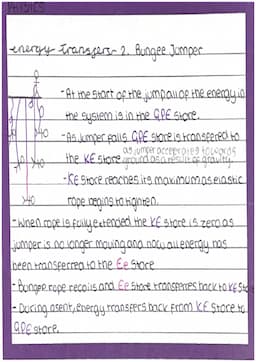 PHYSICS
energy Transfers - 2. Bungee Jumper
- At the start of the jump all of the energy in
the system is in the GPE store.
- As jumper falls GPE store is transferred to
the KE store as jumper accelerates towards
ground as a result of gravity.
- KE store reaches its maximum as elastic
rope begins to tighten.
- When rope is fully extended the KE store is zero as
jumper is no longer moving and now all energy has
been transferred to the Ee store
- Bungee rope recoils and Ee store transferres back to KE store
- During asent, energy transfers back from KE store to
GPE store.